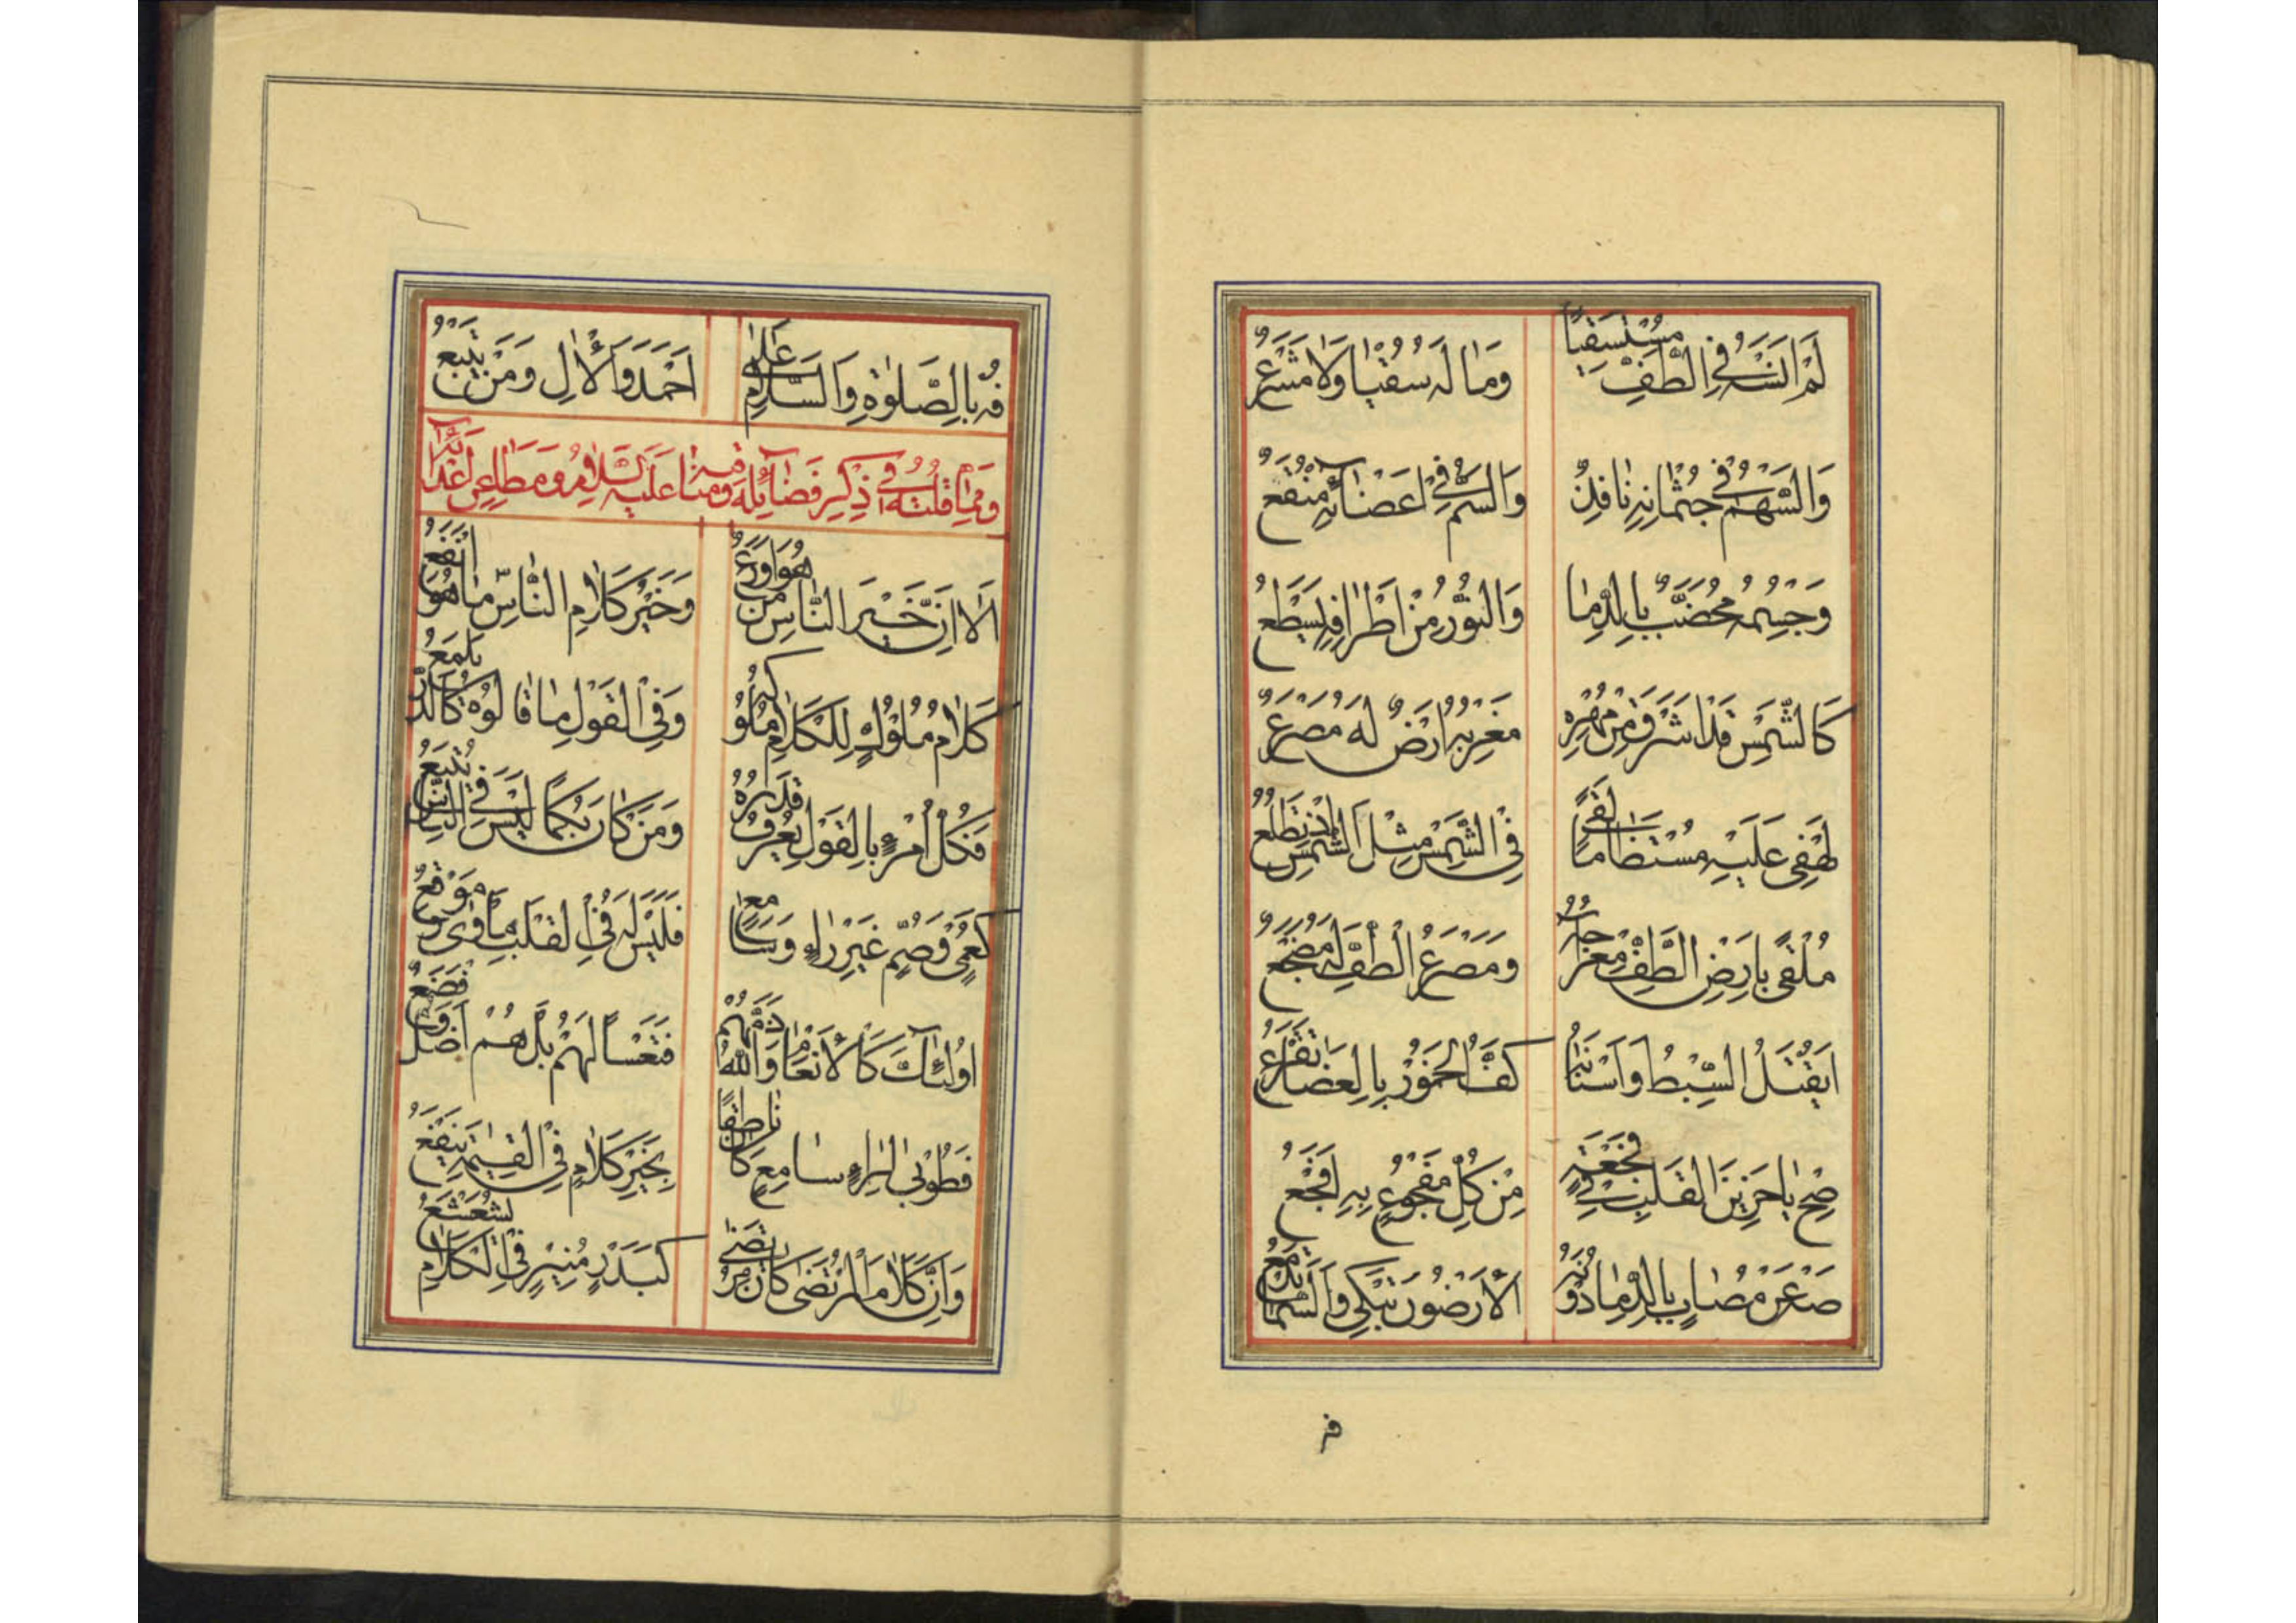 لَمْ اَنْسَهُ فِي الطَّفِّ مُسْتَسْقِيًا وَمَا لَهُ سُقْيًا وَلَا مَشْرَعُ
وَالسَّهْمُ فِي جُثْمَانِهِ نَافِذٌ وَالسَّمُّ فِي اَعْضَائِهِ مُنْقَعُ
وَجِسْمُهُ مُخَضَّبٌ بِالدِّمَا وَالنُّورُ مِنْ اَطْرَافِهِ يَسْطَعُ
كَالشَّمْسِ قَدْ اَشْرَقَ مِنْ مُهْرِهِ مَغْرِبُهُ اَرْضٌ لَهُ مَصْرَعُ
لَهْفِي عَلَيْهِ مُسْتَضَامًا لَقًى فِي الشَّمْسِ مِثْلَ الشَّمْسِ اِذْ تَطْلُعُ
مُلْقًى بِاَرْضِ الطَّفِّ وَمَصْرَعُ الطَّفِّ لَهُ مَضْجَعُ
اَيُقْتَلُ السِّبْطُ وَاَسْنَانُهُ كَفُّ الْخُمُورِ بِالْعَصَا تَقْرَعُ
صِحْ يَا حَزِينَ الْقَلْبِ فِي فَجْعَةٍ مِنْ كُلِّ مَفْجُوعٍ بِهِ اَفْجَعُ
صَهْ عَنْ مُصَابٍ بِالدِّمَا دُونَهُ الْاَرْضُونَ تَبْكِي وَالسَّمَا تَدْمَعُ
فه
فُهْ بِالصَّلٰوةِ وَالسَّلَامِ عَلٰى اَحْمَدَ وَالْاٰلِ وَمَنْ يَتْبَعُ
وَمِمَّا قُلْتُهُ فِي ذِكْرِ فَضَائِلِهِ وَمَنَاقِبِهِ عَلَيْهِ السَّلَامُ وَمَطَاعِنِ اَعْدَائِهِ
اَلَا اِنَّ خَيْرَ النَّاسِ مَنْ هُوَ اَوْرَعُ وَخَيْرُ كَلَامِ النَّاسِ مَا هُوَ اَنْفَعُ
كَلَامُ مُلُوكٍ لِلْكَلَامِ مُلُوكُهُ وَفِي الْقَوْلِ مَا قَالُوهُ كَالدُّرِّ يَلْمَعُ
فَكُلُّ امْرِءٍ بِالْقَوْلِ يُعْرَفُ قَدْرُهُ وَمَنْ كَانَ بُكْمًا لَيْسَ فِي النَّاسِ يُتْبَعُ
كَعُمْيٍ وَصُمٍّ غَيْرِ رَاءٍ وَسَامِعٍ فَلَيْسَ لَهُ فِي الْقَلْبِ مَأْوٰى وَمَوْقِعُ
اُولٰئِكَ كَالْاَنْعَامِ وَاللّٰهُ ذَمَّهُمْ فَتَعْسًا لَهُمْ بَلْ هُمْ اَضَلُّ
فَطُوبٰى لِرَاءٍ سَامِعٍ كَانَ نَاطِقًا بِخَيْرِ كَلَامٍ فِي الْقِيٰمَةِ يَنْفَعُ
وَاِنَّ كَلَامَ الْمُرْتَضٰى كَانَ مُرْتَضٰى كَبَدْرٍ مُنِيرٍ فِي الْكَلَامِ يُشَعْشَعُ